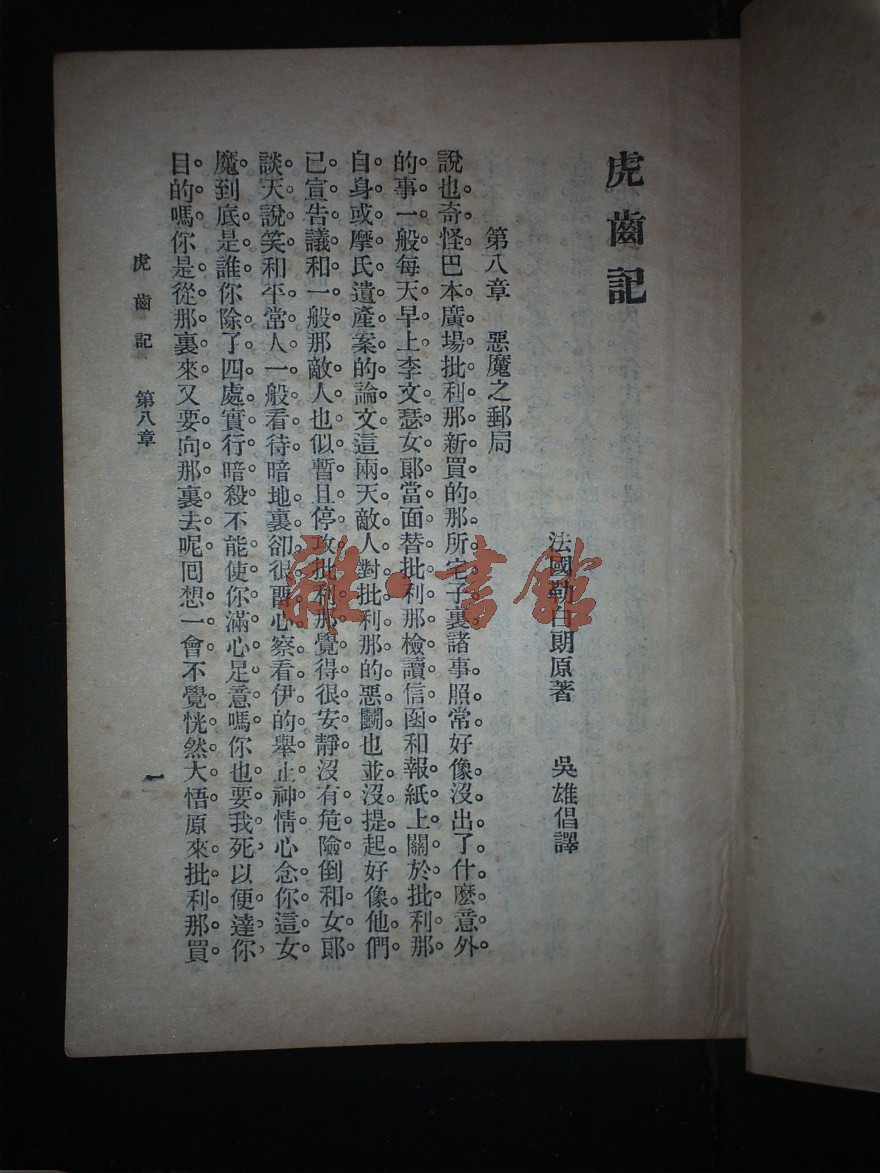 虎齒記
法國勒白朗原著　吳雄倡譯
第八章　惡魔之郵局
說也奇怪巴本廣場批利那新買的那所宅子裏諸事照常好像沒出了什麼意外
的事一般每天早上李文瑟女郞當面替批利那檢讀信函和報紙上關於批利那
自身或摩氏遺產案的論文這兩天敵人對批利那的惡鬭也並沒提起好像他們
已宣告議和一般那敵人也似暫且停攻批利那覺得很安靜沒有危險倒和女郞
談天說笑和平常人一般看待暗地裏卻很留心察看伊的舉止神情心念你這女
魔到底是誰你除了四處實行暗殺不能使你滿心足意嗎你也要我死以便達你
目的嗎你是從那裏來又要向那裏去呢囘想一會不覺恍然大悟原來批利那買
虎齒記　第八章
一
雜·書館